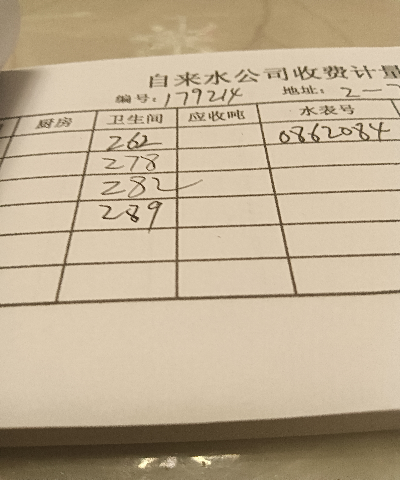 自来水公司收费计量
编号: 179214 地址: 2-7
厨房 卫生间 应收吨 水表号
262 0862084
278
282
289